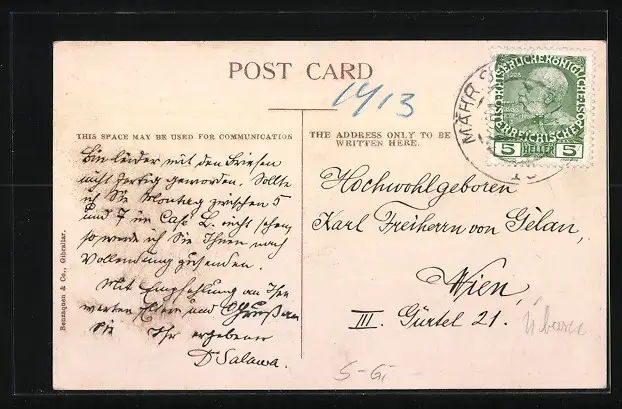 POST CARD
1913
THIS SPACE MAY BE USED FOR COMMUNICATION
THE ADDRESS ONLY TO BE
WRITTEN HERE.
Bin leider mit den Briefen
nicht fertig geworden. Sollte
ich Sie Montag zwischen 5
und 7 im Café L. nicht sehen,
so werde ich Sie Ihnen nach
Vollendung zusenden.
Mit Empfehlung an Ihre
werten Eltern und Gruß an
Sie Ihr ergebener
Dr Salawa.
Hochwohlgeboren
Karl Freiherrn von Gělan,
Wien,
III. Gürtel 21.
MÄHR.
KAISERLICHE KÖNIGLICHE
5 HELLER 5
Benzaquen & Co., Gibraltar.
5-G